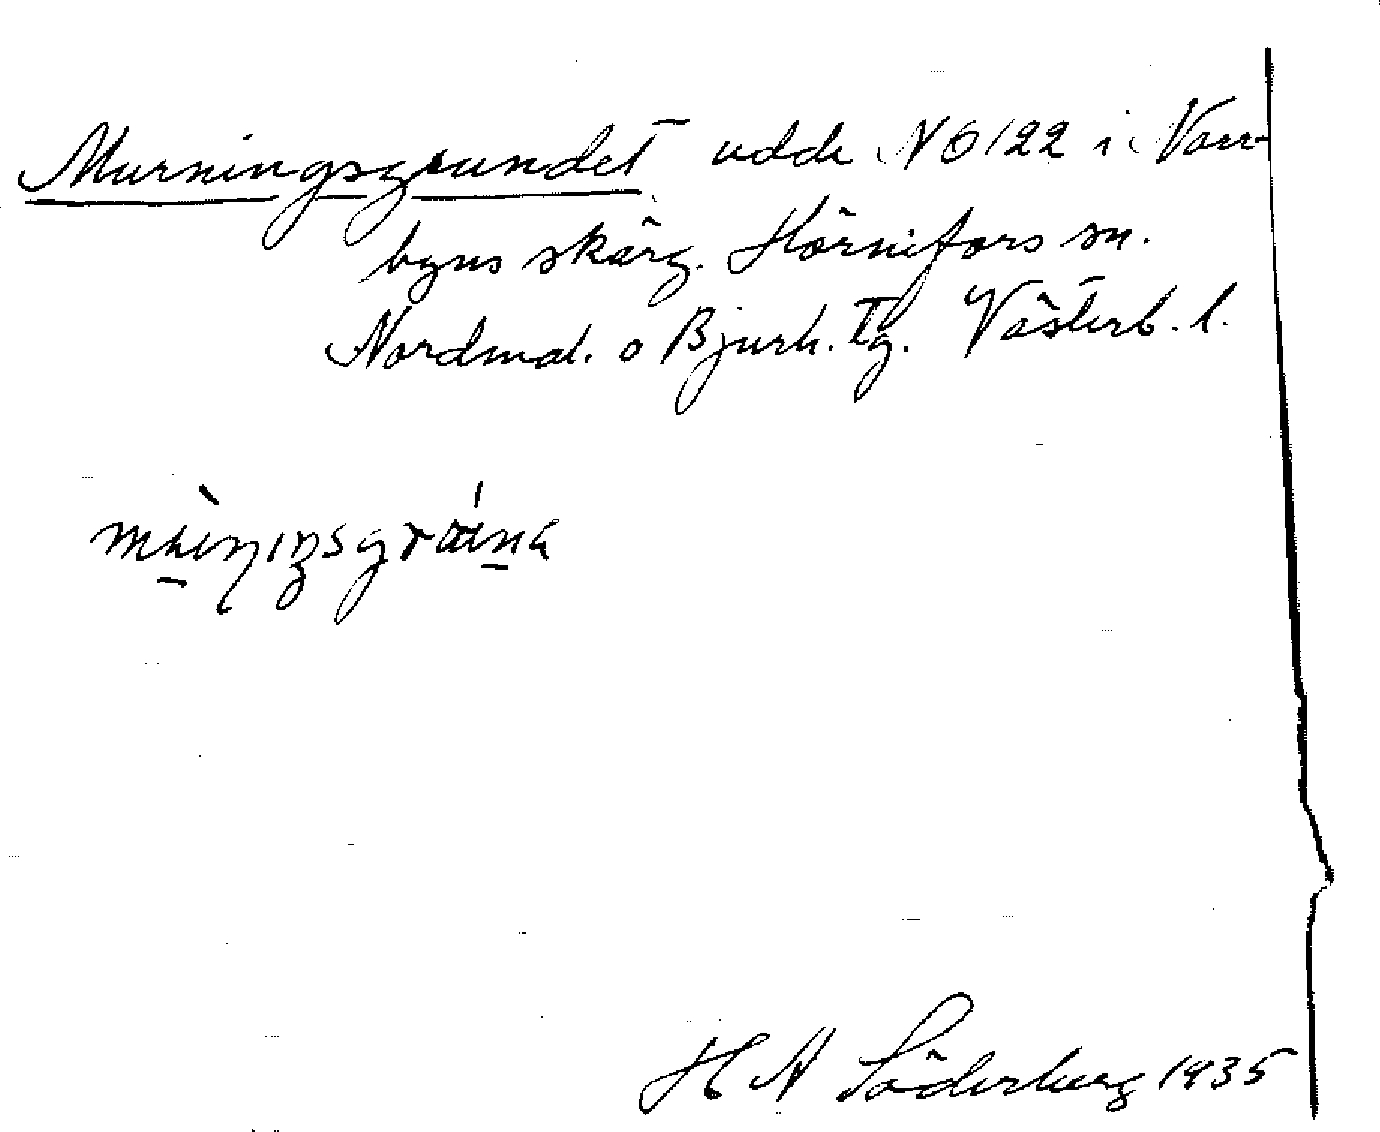 Murningsgrundet udde NO 122 i Norr-
byns skärg. Hörnefors sn.
Nordmal. o Bjurh. tg. Västerb. l.
H A Söderberg 1935